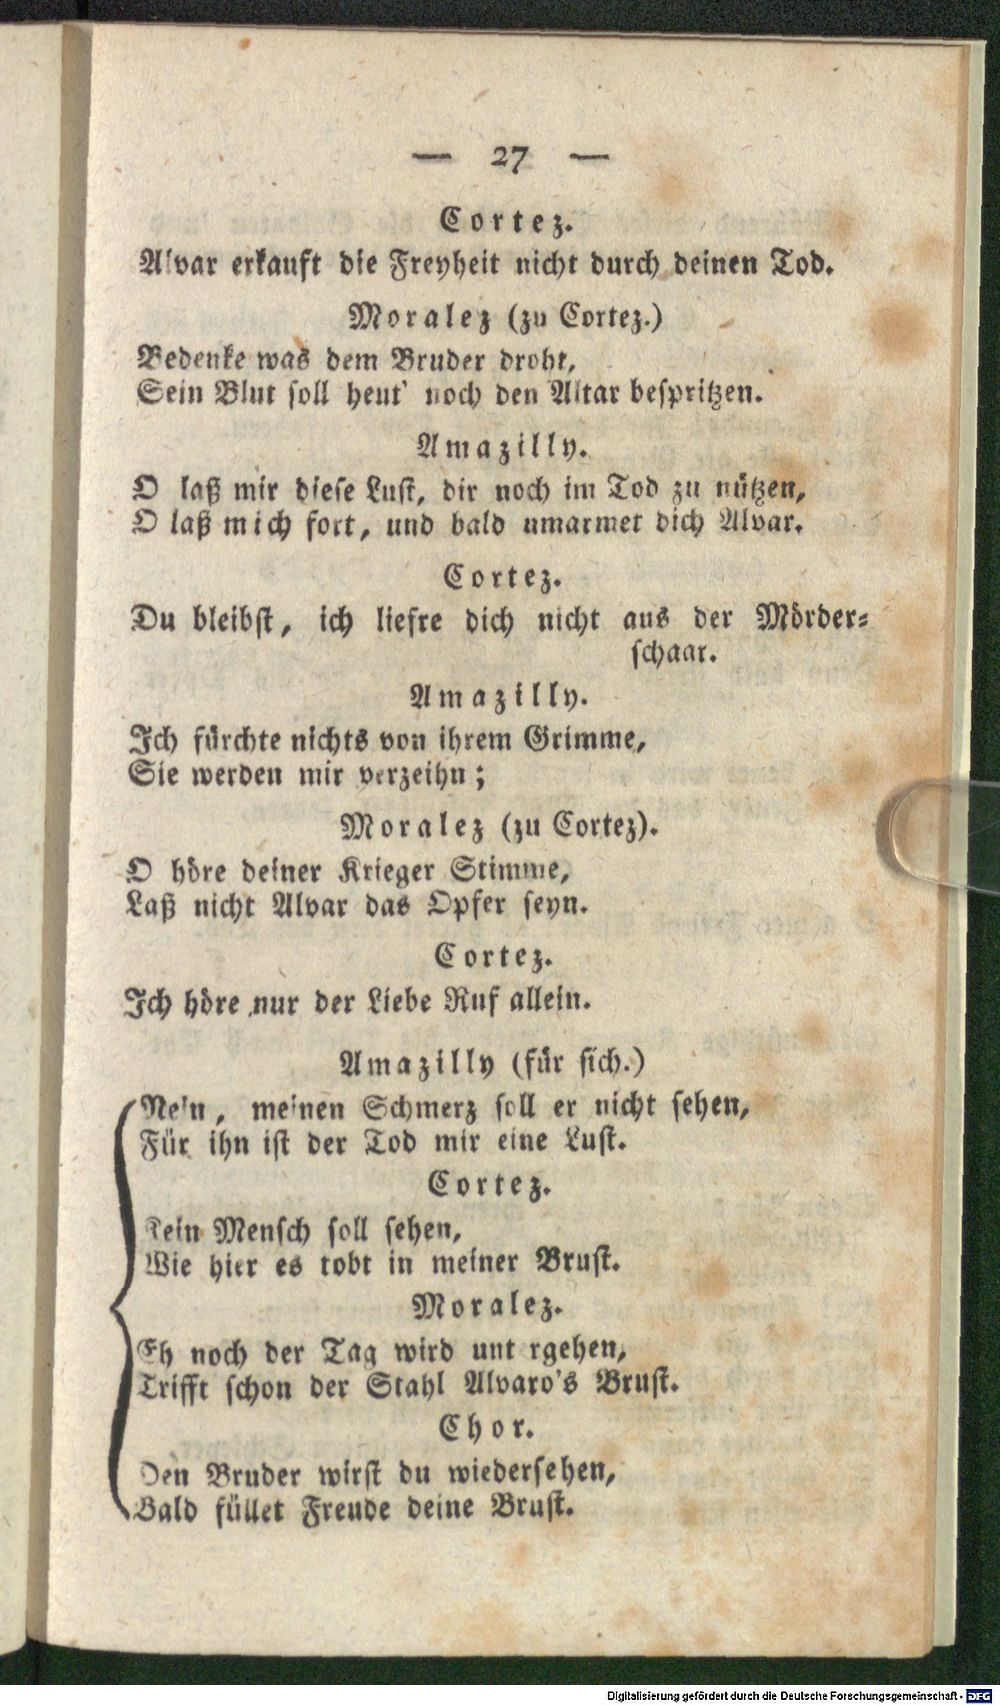 — 27 —
Cortez.
Alvar erkauft die Freyheit nicht durch deinen Tod.
Moralez (zu Cortez.)
Bedenke was dem Bruder droht,
Sein Blut soll heut' noch den Altar bespritzen.
Amazilly.
O laß mir diese Lust, dir noch im Tod zu nützen,
O laß mich fort, und bald umarmet dich Alvar.
Cortez.
Du bleibst, ich liefre dich nicht aus der Mörder-
schaar.
Amazilly.
Ich fürchte nichts von ihrem Grimme,
Sie werden mir verzeihn;
Moralez (zu Cortez).
O höre deiner Krieger Stimme,
Laß nicht Alvar das Opfer seyn.
Cortez.
Ich höre nur der Liebe Ruf allein.
Amazilly (für sich.)
Nein, meinen Schmerz soll er nicht sehen,
Für ihn ist der Tod mir eine Lust.
Cortez.
Kein Mensch soll sehen,
Wie hier es tobt in meiner Brust.
Moralez.
Eh noch der Tag wird unt rgehen,
Trifft schon der Stahl Alvaro's Brust.
Chor.
Den Bruder wirst du wiedersehen,
Bald füllet Freude deine Brust.
Digitalisierung gefördert durch die Deutsche Forschungsgemeinschaft - DFG